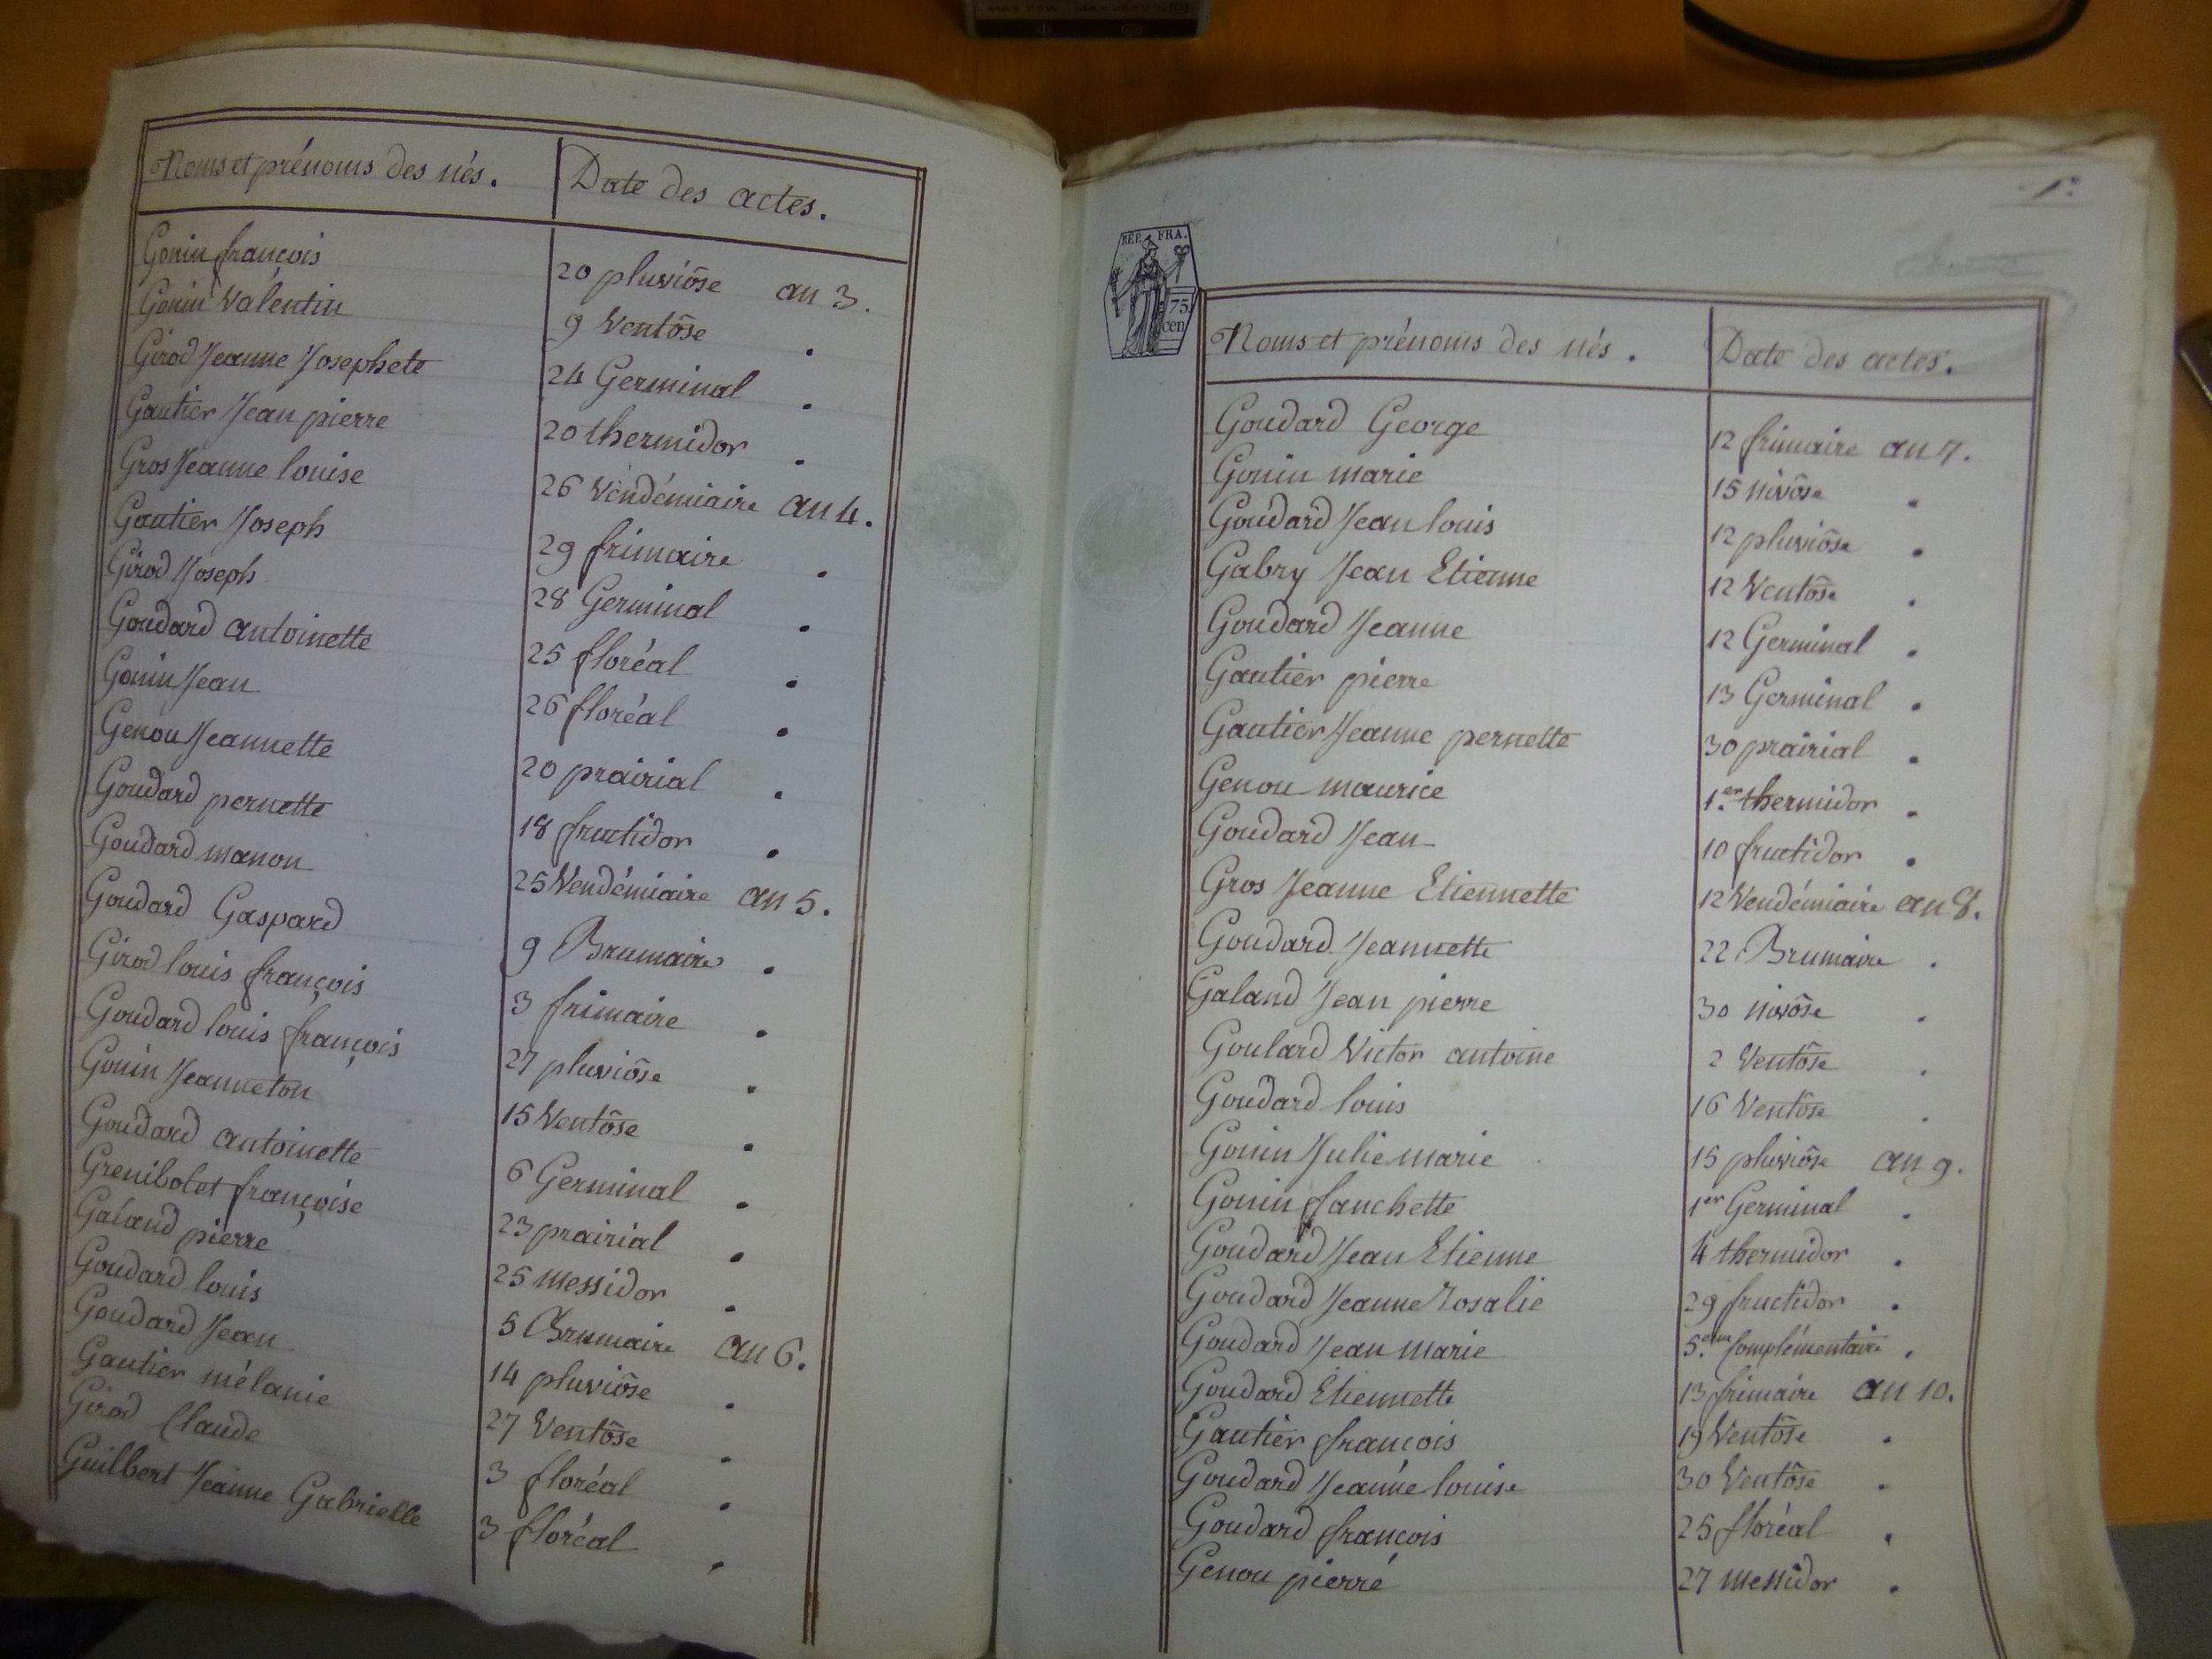 Noms et prénoms des nés. Date des actes.
Gonin françois 20 pluviôse an 3.
Gonin Valentin 9 Ventôse .
Girod Jeanne Josephete 24 Germinal .
Gautier Jean pierre 20 thermidor .
Gros Jeanne louise 26 Vendémiaire an 4.
Gautier Joseph 29 frimaire .
Girod Joseph 28 Germinal .
Goudard antoinette 25 floréal .
Gonin Jean 26 floréal .
Genou Jeannette 20 prairial .
Goudard pernette 18 fructidor .
Goudard manon 25 Vendémiaire an 5.
Goudard Gaspard 9 Brumaire .
Girod louis françois 3 frimaire .
Goudard louis françois 27 pluviôse .
Gonin Jeanneton 15 Ventôse .
Goudard antoinette 6 Germinal .
Grenibolet françoise 23 prairial .
Galand pierre 25 messidor .
Goudard louis 5 Brumaire an 6.
Goudard Jean 14 pluviôse .
Gautier mélanie 27 Ventôse .
Girod Claude 3 floréal .
Guilbert Jeanne Gabrielle 3 floréal .
REP. FRA.
75
cen
Noms et prénoms des nés. Date des actes.
Goudard George 12 frimaire an 7.
Gonin marie 15 nivôse .
Goudard Jean louis 12 pluviôse .
Gabry Jean Etienne 12 Ventôse .
Goudard Jeanne 12 Germinal .
Gautier pierre 13 Germinal .
Gautier Jeanne pernette 30 prairial .
Genou maurice 1.er thermidor .
Goudard Jean 10 fructidor .
Gros Jeanne Etiennette 12 Vendémiaire an 8.
Goudard Jeannette 22 Brumaire .
Galand Jean pierre 30 nivôse .
Goulard Victor antoine 2 Ventôse .
Goudard louis 16 Ventôse .
Gonin Julie marie 15 pluviôse an 9.
Gonin fanchette 1er Germinal .
Goudard Jean Etienne 4 thermidor .
Goudard Jeanne Rosalie 29 fructidor .
Goudard Jean marie 5.eme Complémentaire .
Goudard Etiennette 13 frimaire an 10.
Gautier françois 19 Ventôse .
Goudard Jeanne louise 30 Ventôse .
Goudard françois 25 floréal .
Genou pierre 27 messidor .